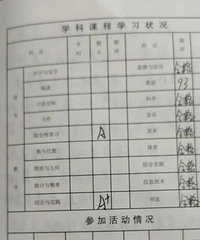 学科课程学习状况
科目 平时 期末 期评 科目 期评
识字与写字 道德与法治 合格
阅读 英语 93
口语交际 科学 合格
习作 音乐 合格
语文 综合性学习 A 美术 合格
数与代数 体育 合格
图形与几何 综合实践 合格
数学 统计与概率 信息技术 合格
综合与实践 A+ 书法 合格
参加活动情况